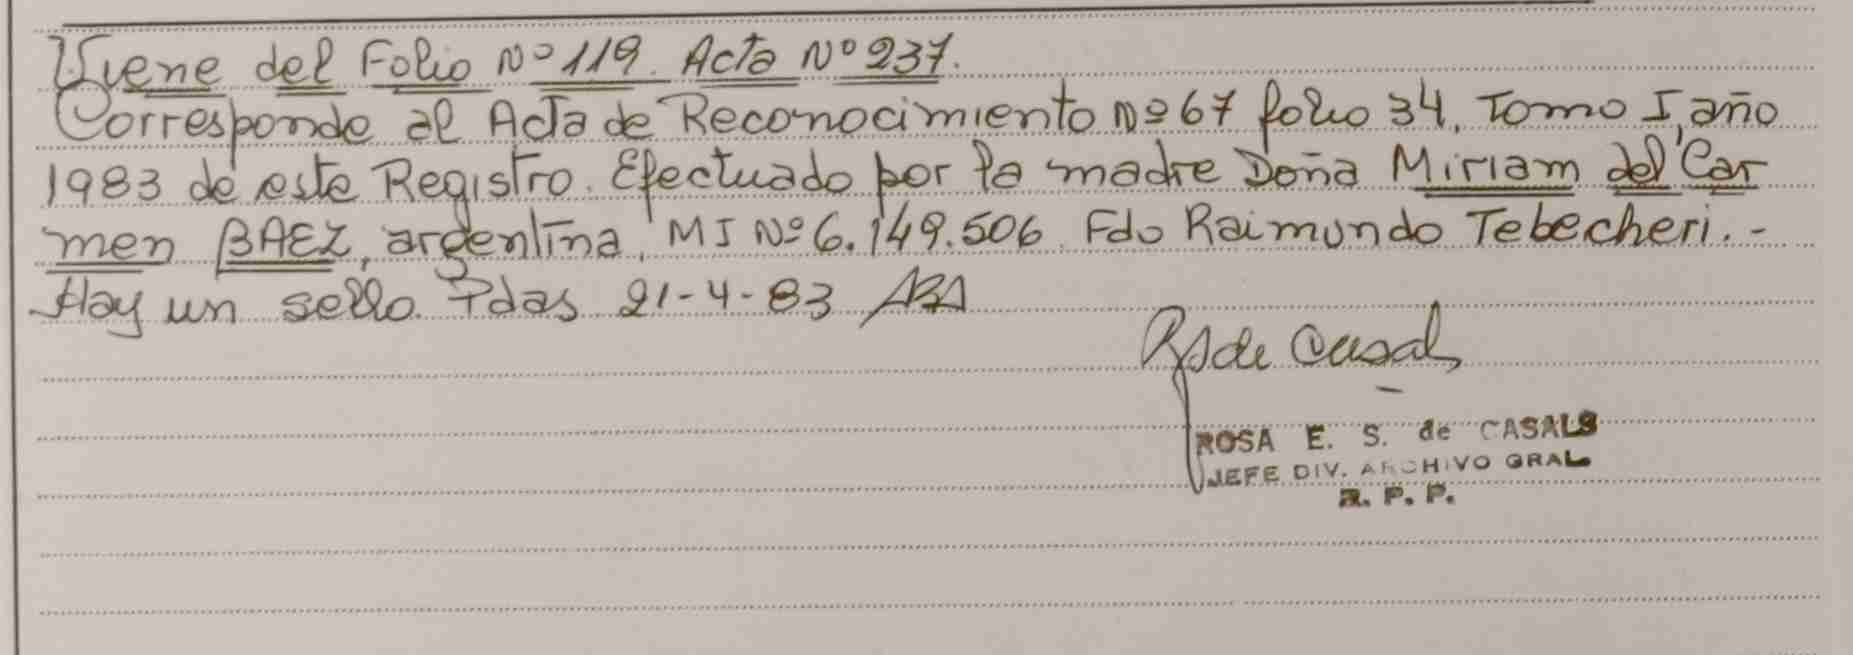 Viene del Folio Nº 119. Acta Nº 237.
Corresponde al Acta de Reconocimiento Nº 67 folio 34, Tomo I, año
1983 de este Registro. Efectuado por la madre Doña Miriam del Car
men BAEZ, argentina, MI Nº 6.149.506. Fdo Raimundo Tebecheri.-
Hay un sello. Pdas 21-4-83
RS de Casals
ROSA E. S. de CASALS
JEFE DIV. ARCHIVO GRAL
R. P. P.